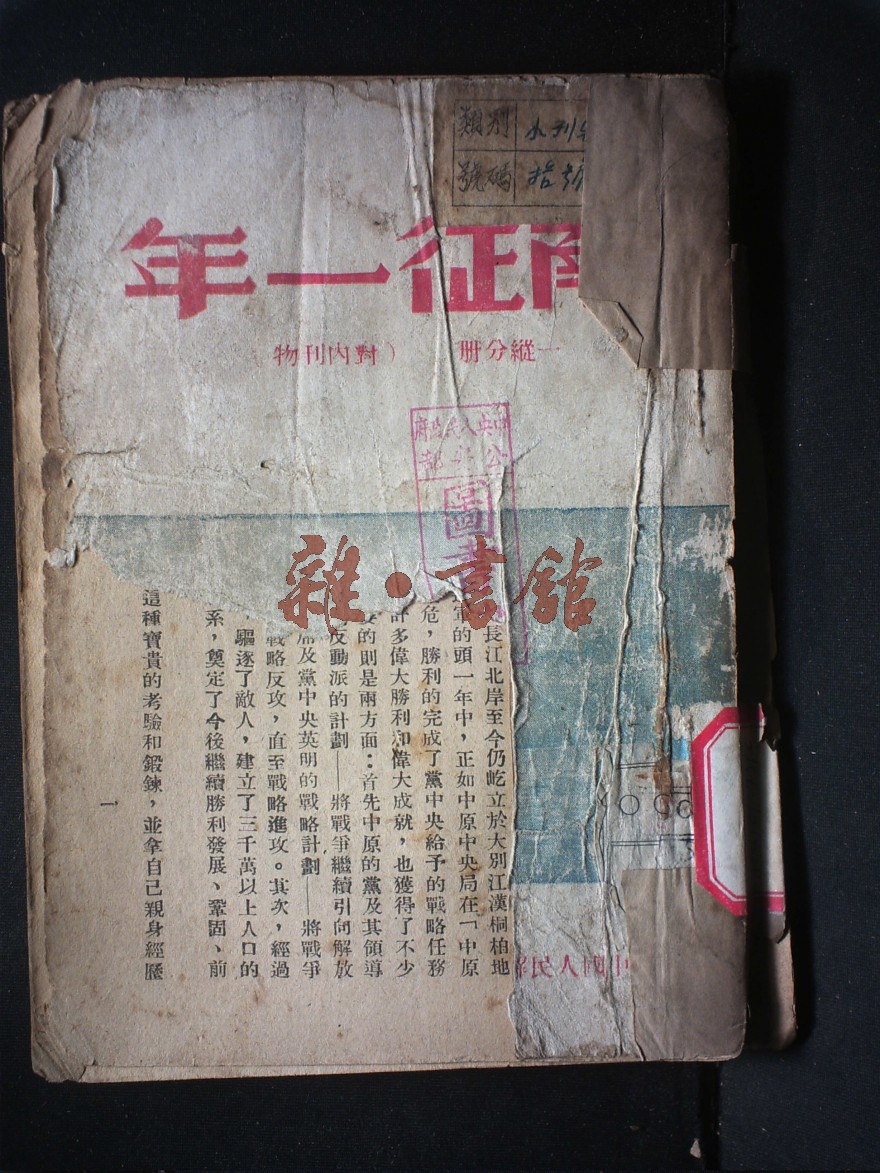 類別
號碼
南征一年
一縱分册
）對內刊物
中央人民政府
公安部
圖書
雜·書館
長江北岸至今仍屹立於大別江漢桐柏地
軍的頭一年中，正如中原中央局在「中原
危，勝利的完成了黨中央給予的戰略任務
許多偉大勝利和偉大成就，也獲得了不少
要的則是兩方面：首先中原的黨及其領導
反動派的計劃——將戰爭繼續引向解放
席及黨中央英明的戰略計劃——將戰爭
戰略反攻，直至戰略進攻。其次，經過
驅逐了敵人，建立了三千萬以上人口的
系，奠定了今後繼續勝利發展、鞏固、前
這種寶貴的考驗和鍛鍊，並拿自己親身經歷
一
中國人民解